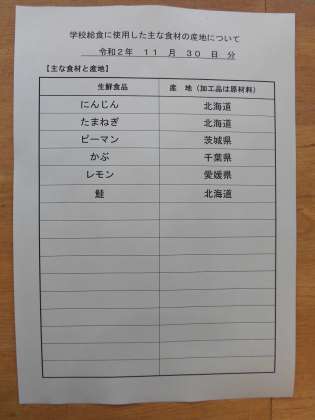 学校給食に使用した主な食材の産地について
令和2年 11 月 30 日 分
【主な食材と産地】
生鮮食品 産 地（加工品は原材料）
にんじん 北海道
たまねぎ 北海道
ピーマン 茨城県
かぶ 千葉県
レモン 愛媛県
鮭 北海道